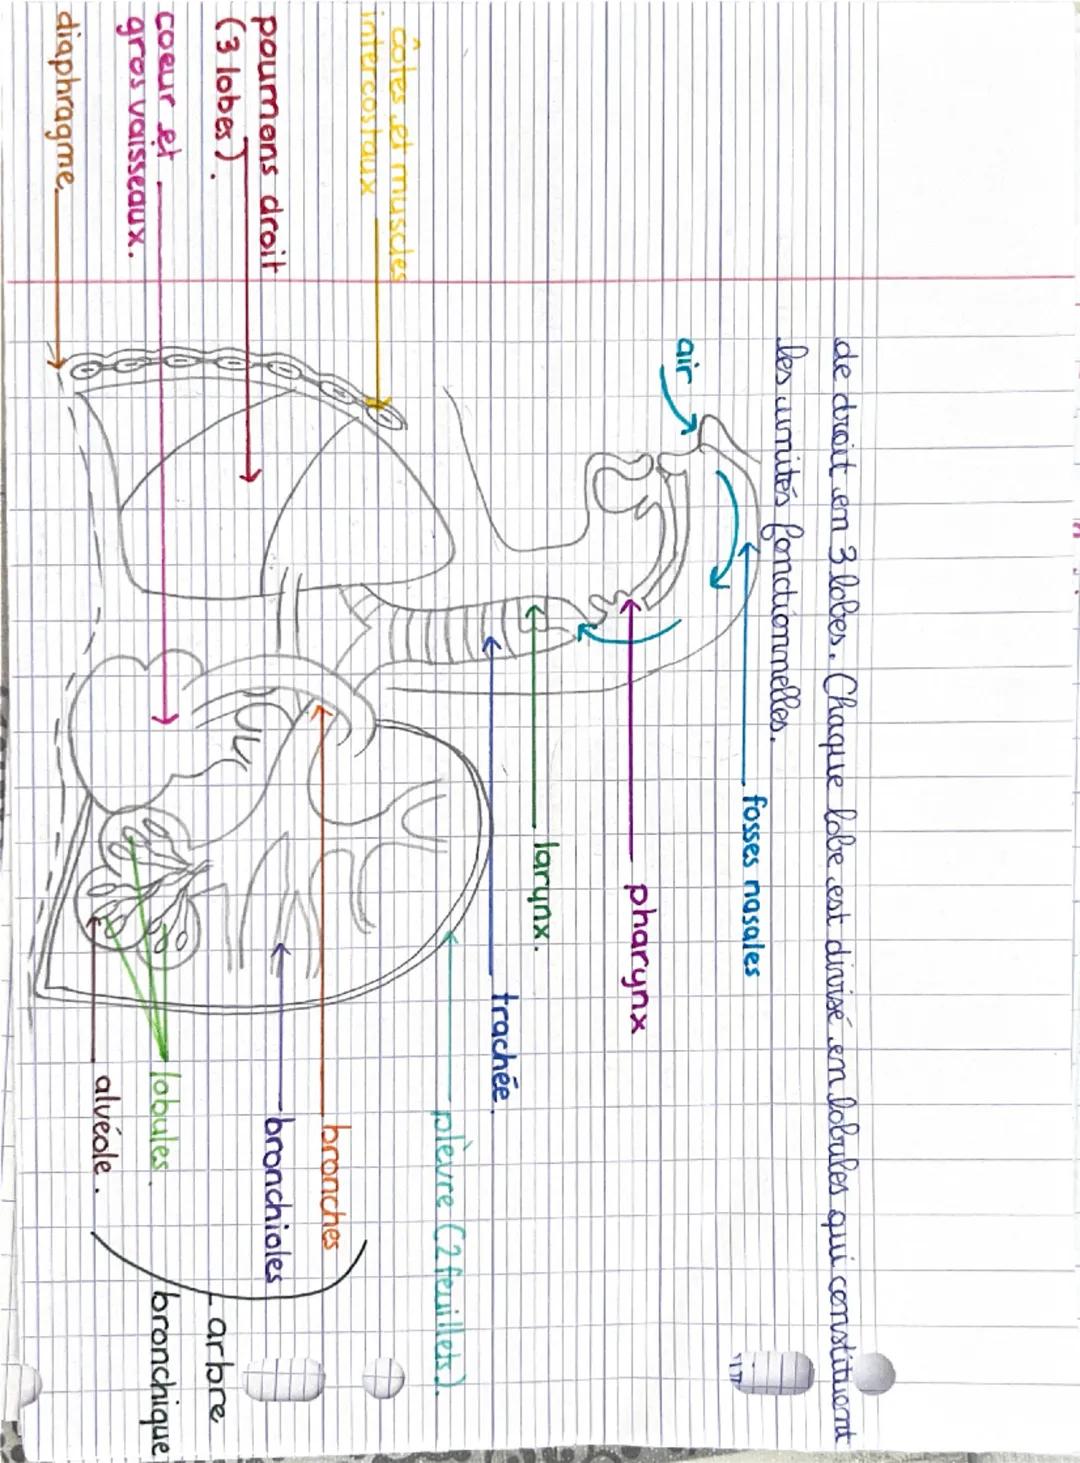 de droit en 3 lobes. Chaque lobe est divisé en lobules qui constituent
les unités fonctionnelles.
air
fosses nasales
pharynx
larynx.
trachée.
plèvre (2 feuillets).
côtes et muscles
intercostaux
poumons droit
(3 lobes).
coeur et
gros vaisseaux.
diaphragme.
bronches
bronchioles
lobules.
alvéole.
arbre
bronchique